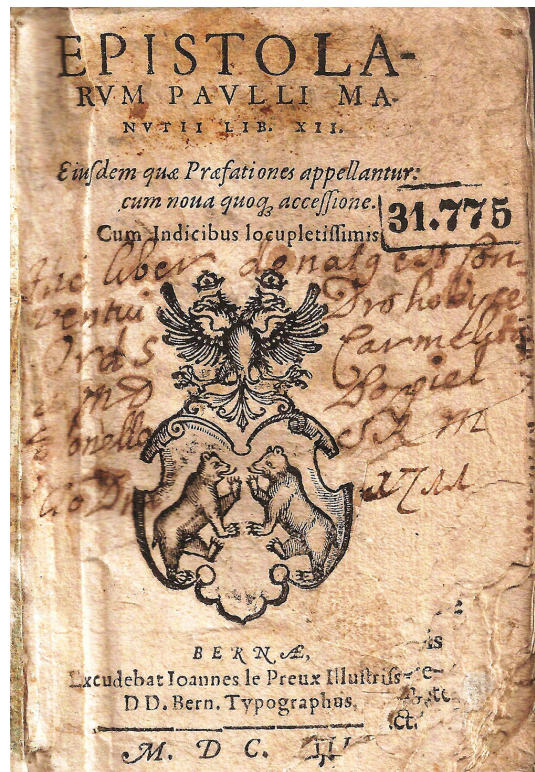 EPISTOLA-
RVM PAVLLI MA-
NVTII LIB. XII.
Eiusdem quæ Præfationes appellantur:
cum noua quoqꝫ accessione.
31.775
Cum Indicibus locupletissimis
liber donatq est Con-
ventui Drohobyce
Ords Carmelit
Daniel
SRM
1711
BERNÆ,
Excudebat Ioannes le Preux Illustriss-
DD. Bern. Typographus.
ct.
M. D C. III